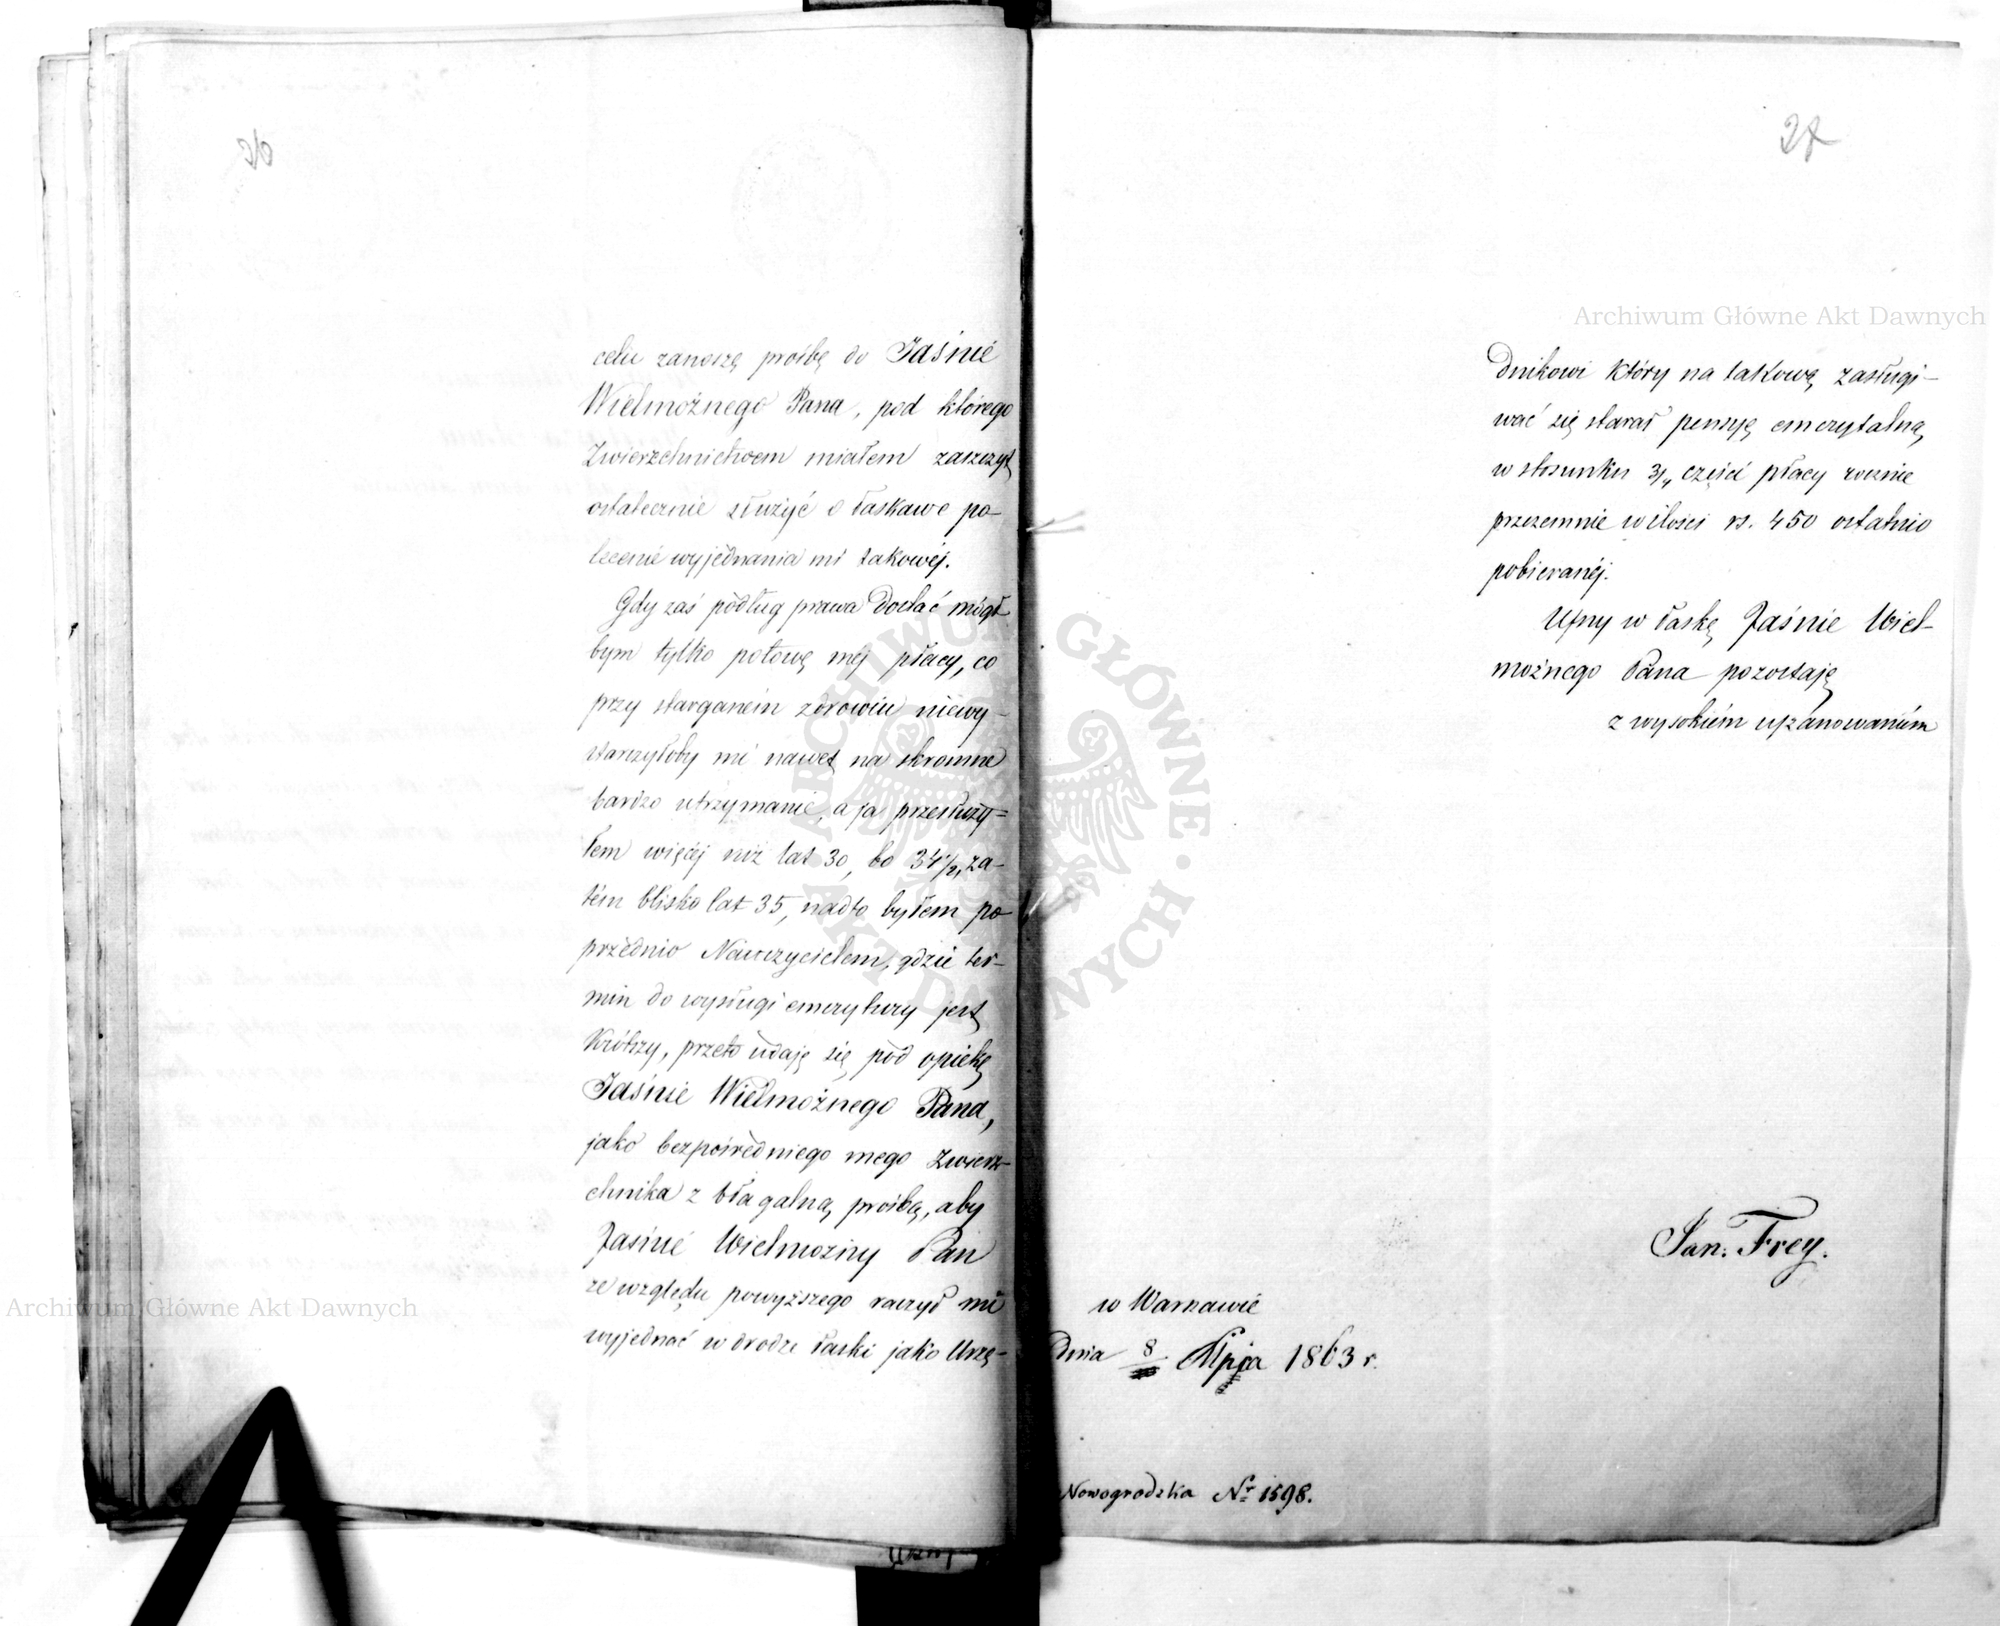 celu zanoszę prośbę do Jaśnie
Wielmożnego Pana, pod którego
Zwierzchnictwem miałem zaszczyt
ostatecznie służyć o łaskawe po-
lecenie wyjednania mi takowéj.
Gdy zaś podług prawa dostać mógł-
bym tylko połowę méj płacy, co
przy starganém zdrowiu niewy-
starczyłoby mi nawet na skromne
bardzo utrzymanie, a ja przesłuży=
łem więcéj niż lat 30, bo 34 1/2, za-
tém blisko lat 35, nadto byłem po-
przednio Nauczycielem, gdzie ter-
min do wysługi emerytury jest
krótszy, przeto udaję się pod opiekę
Jaśnie Wielmożnego Pana,
jako bezpośredniego mego Zwierz-
chnika z błagalną prośbą, aby
Jaśnie Wielmożny Pan
ze względu powyższego raczył mi
wyjednać w drodze łaski jako Urzę-
27
dnikowi który na takową zasługi-
wać się starał pensyę emerytalną,
w stosunku 3/4 części płacy rocznie
przezemnie w ilości rs. 450 ostatnio
pobieranéj.
Ufny w łaskę Jaśnie Wiel-
możnego Pana pozostaję
z wysokiém uszanowaniem
Jan. Frey.
w Warszawie
dnia 8 1863 r.
Nowogrodzka Nr 1598.
Archiwum Główne Akt Dawnych
Archiwum Główne Akt Dawnych
ARCHIWUM GŁÓWNE
· AKT DAWNYCH ·